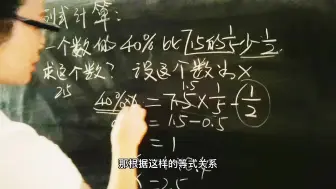 列式计算:
一个数的40%比7.5的1/5少1/2.
求这个数? 设这个数为x
2.5
1.5
40%x = 7.5×1/5-1/2
= 1.5-0.5
= 1
x = 2.5
那根据这样的等式关系